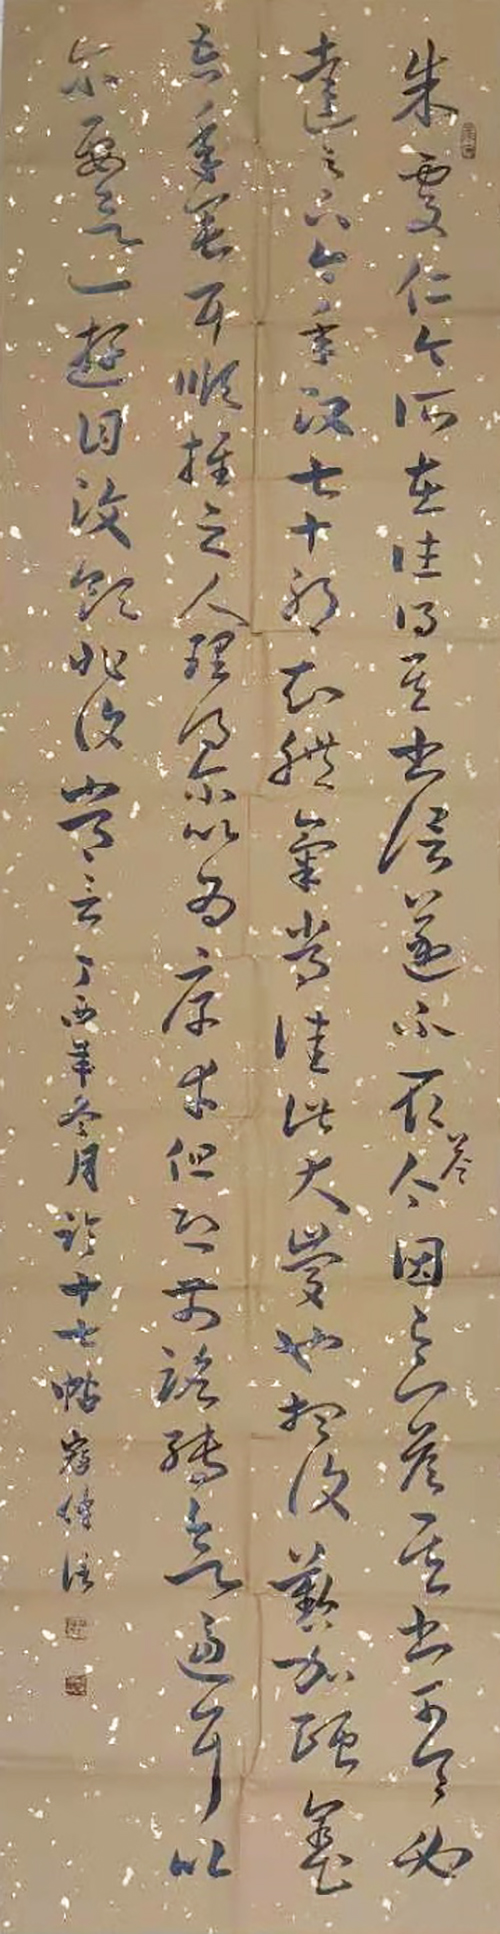 朱處仁今所在往得其書信遂不取答今因足下答其書可令必
達足下今年政七十耶知體氣常佳此大慶也想復勤加頤養
吾年垂耳順推之人理得爾以為厚幸但恐前路轉欲逼耳以
爾要欲一遊目汶領非復常言丁酉年冬月臨十七帖